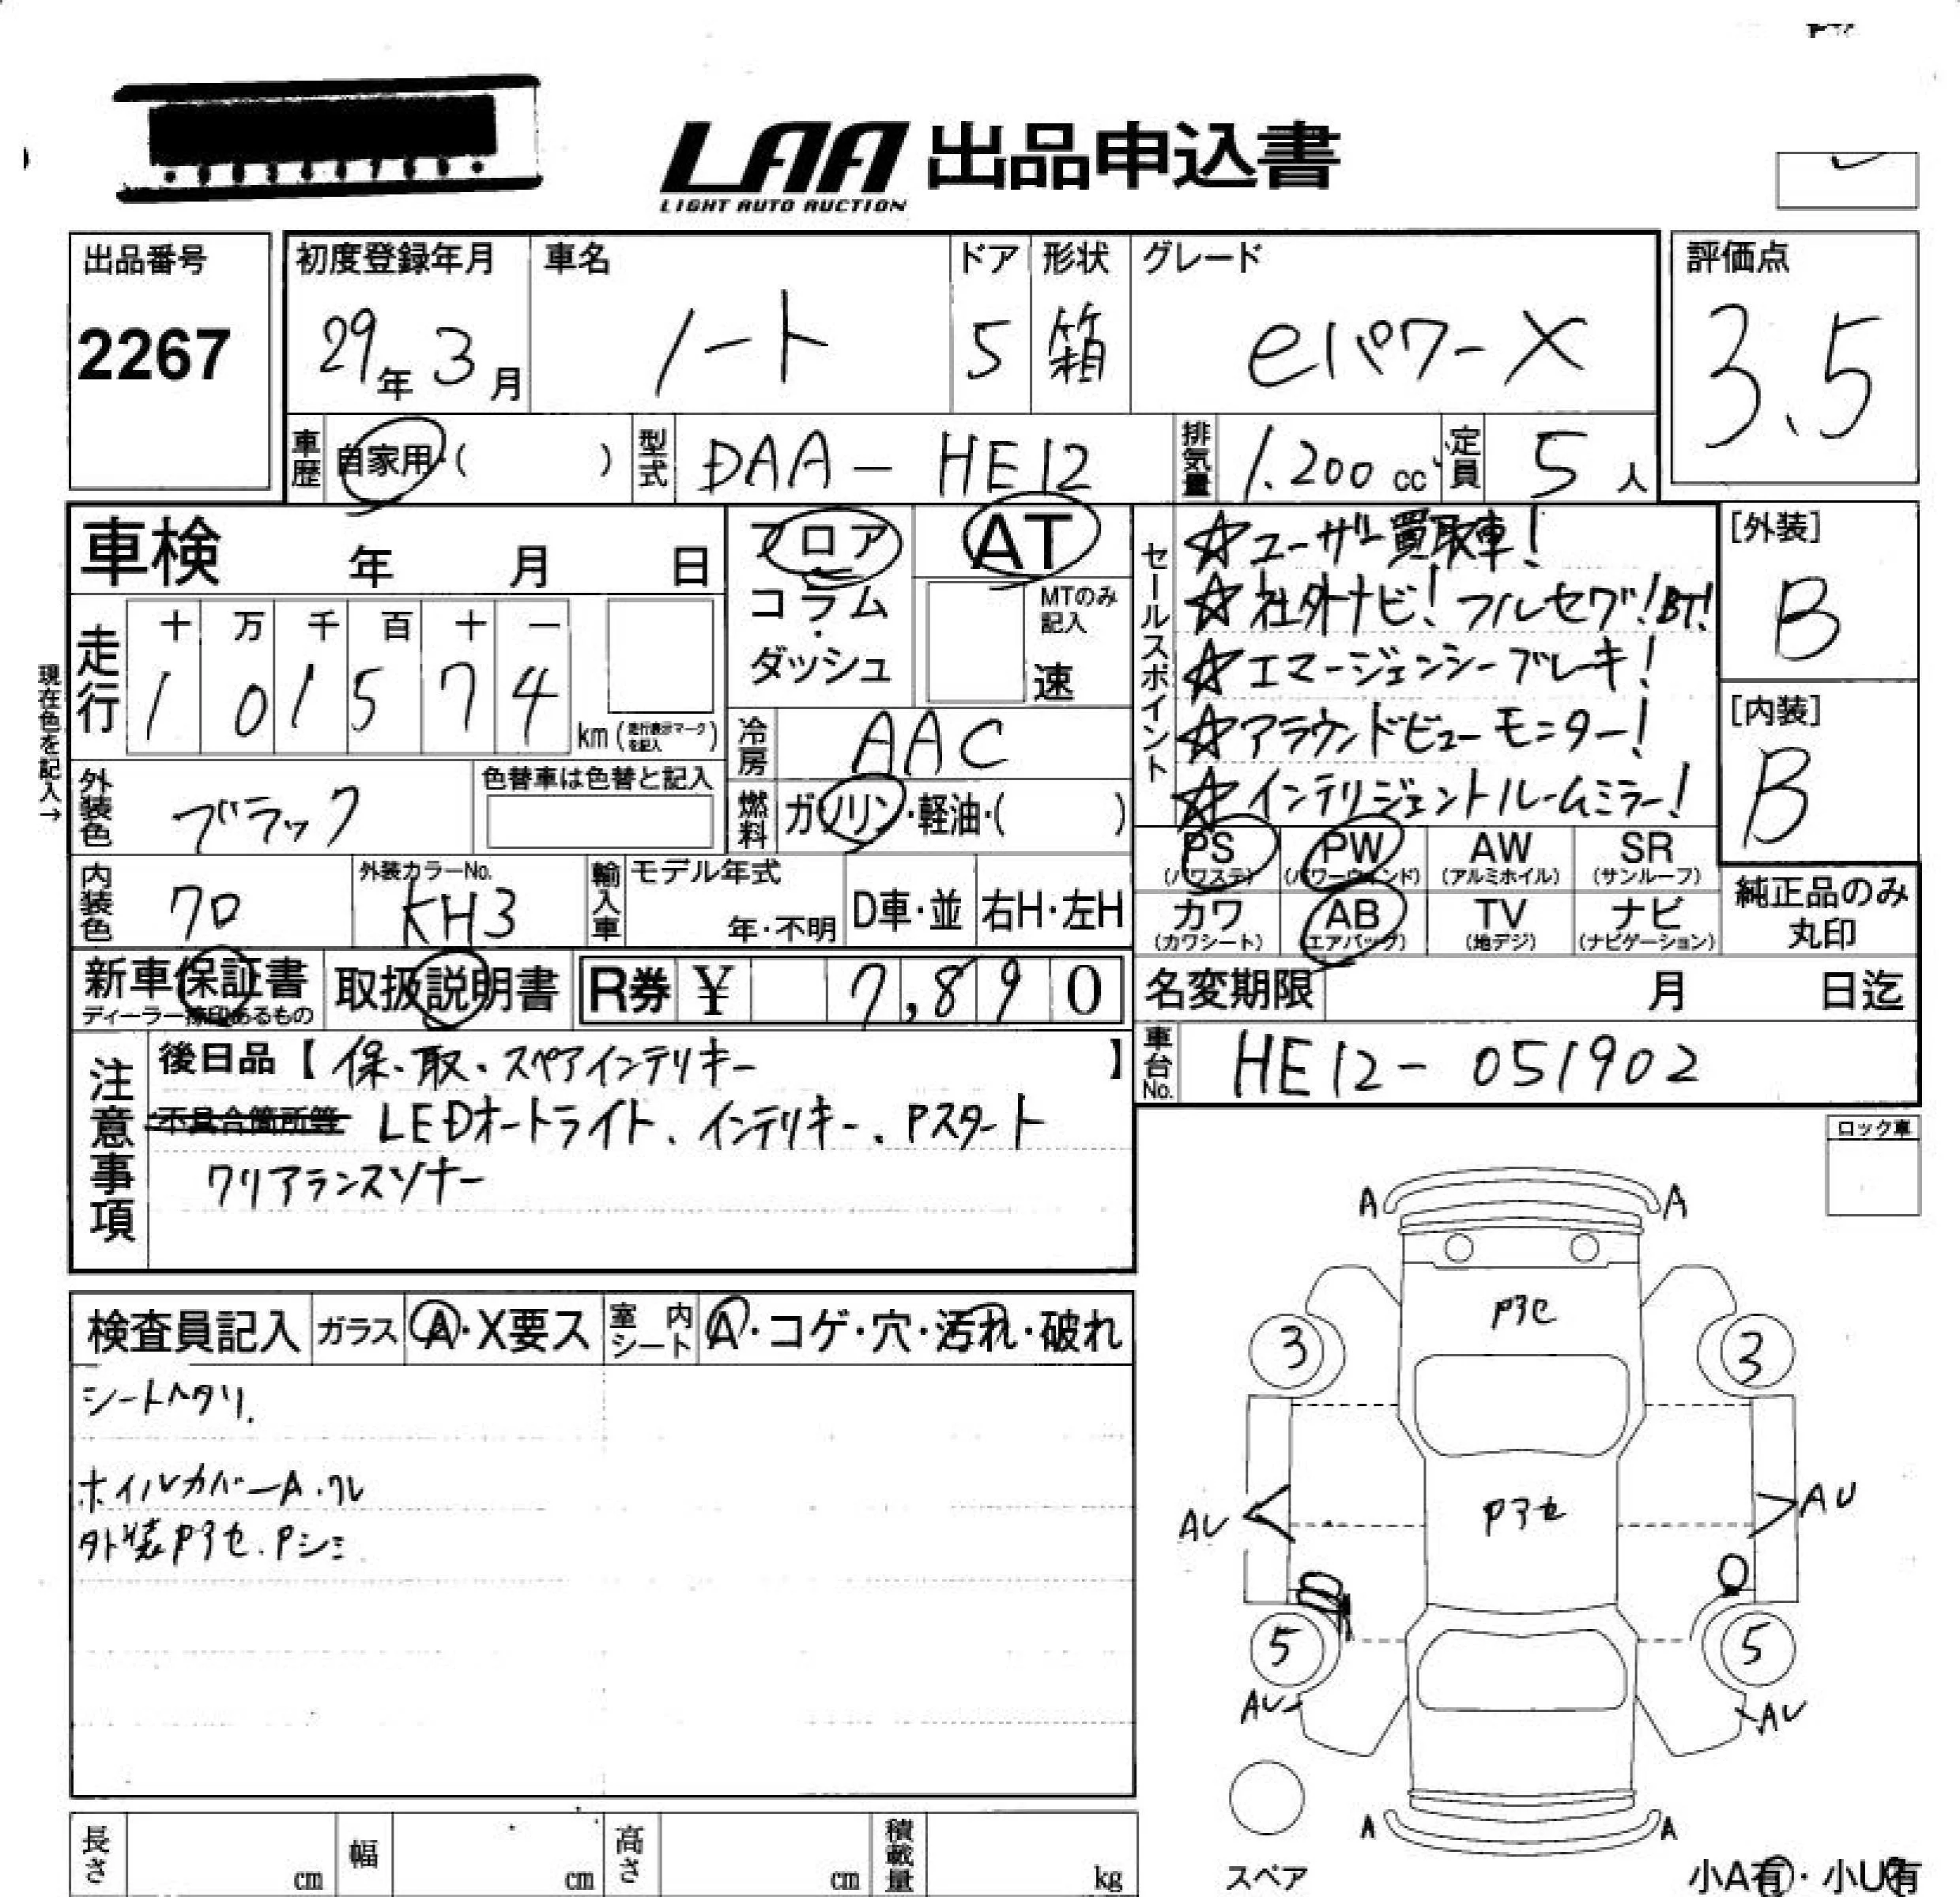 LAA 出品申込書
LIGHT AUTO AUCTION
出品番号
2267
初度登録年月
29年3月
車名
ノート
ドア
5
形状
箱
グレード
eパワーX
評価点
3.5
車歴
自家用・( )
型式
DAA-HE12
排気量
1.200cc
定員
5人
車検 年 月 日
フロア
コラム
・
ダッシュ
AT
MTのみ
記入
速
セールスポイント
☆ユーザー買取車!
☆社外ナビ!フルセグ!BT!
☆エマージェンシーブレーキ!
☆アラウンドビューモニター!
☆インテリジェントルームミラー!
[外装]
B
[内装]
B
現在色を記入→
走行
十 万 千 百 十 一
1 0 1 5 7 4
km(走行表示マークを記入)
冷房
AAC
燃料
ガソリン・軽油・( )
外装色
ブラック
色替車は色替と記入
内装色
クロ
外装カラーNo.
KH3
輸入車
モデル年式
年・不明
D車・並
右H・左H
PS
(パワステ)
PW
(パワーウィンド)
AW
(アルミホイル)
SR
(サンルーフ)
カワ
(カワシート)
AB
(エアバック)
TV
(地デジ)
ナビ
(ナビゲーション)
純正品のみ
丸印
新車保証書
ディーラー捺印あるもの
取扱説明書
R券 ¥ 7,890
名変期限 月 日迄
注意事項
後日品【保、取、スペアインテリキー】
不具合箇所等 LEDオートライト、インテリキー、Pスタート
クリアランスソナー
車台No.
HE12-051902
ロック車
検査員記入
ガラス
A・X要ス
室内
シート
A・コゲ・穴・汚れ・破れ
シートヘタリ.
ホイルカバーA.ワレ
外装Pアセ.Pシミ
A A
Pアセ
3 3
Pアセ
AU AU
5 5
AU AU
A A
スペア
小A有・小U有
長さ cm
幅 cm
高さ cm
積載量 kg